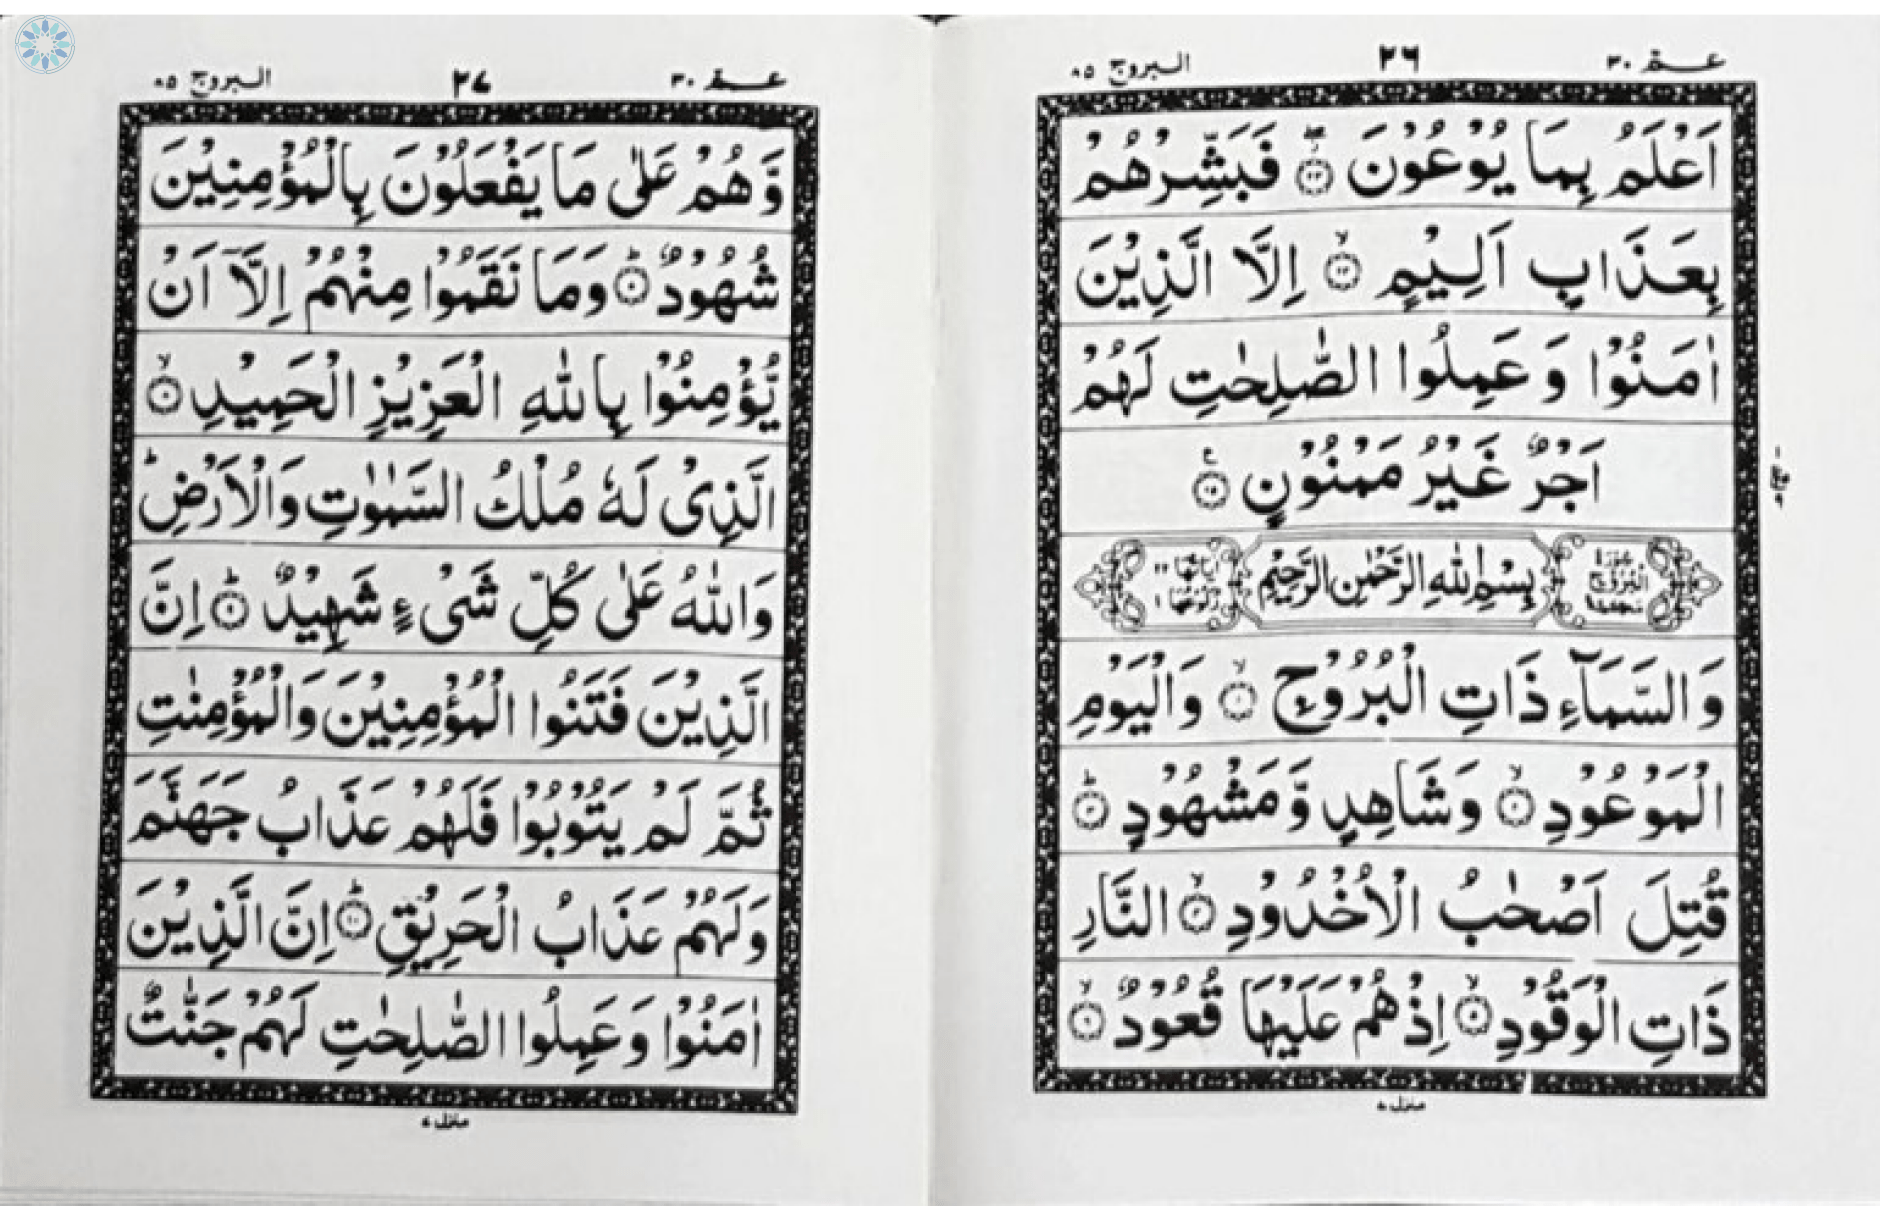 عـمّ ٣٠
٢٦
البروج ٨٥
اَعْلَمُ بِمَا يُوْعُوْنَ ۝٢٣ فَبَشِّرْهُمْ
بِعَذَابٍ اَلِيْمٍ ۙ۝٢٤ اِلَّا الَّذِيْنَ
اٰمَنُوْا وَ عَمِلُوا الصّٰلِحٰتِ لَهُمْ
اَجْرٌ غَيْرُ مَمْنُوْنٍ ۝٢٥
سُوْرَةُ الْبُرُوْجِ
بِسْمِ اللّٰهِ الرَّحْمٰنِ الرَّحِيْمِ
اٰيَاتُهَا ٢٢
رُكُوْعُهَا ١
وَ السَّمَآءِ ذَاتِ الْبُرُوْجِ ۙ۝١ وَ الْيَوْمِ
الْمَوْعُوْدِ ۙ۝٢ وَ شَاهِدٍ وَّ مَشْهُوْدٍ ؕ۝٣
قُتِلَ اَصْحٰبُ الْاُخْدُوْدِ ۙ۝٤ النَّارِ
ذَاتِ الْوَقُوْدِ ۙ۝٥ اِذْ هُمْ عَلَيْهَا قُعُوْدٌ ۙ۝٦
منزل ٧
عـمّ ٣٠
٢٧
البروج ٨٥
وَّ هُمْ عَلٰى مَا يَفْعَلُوْنَ بِالْمُؤْمِنِيْنَ
شُهُوْدٌ ؕ۝٧ وَ مَا نَقَمُوْا مِنْهُمْ اِلَّاۤ اَنْ
يُّؤْمِنُوْا بِاللّٰهِ الْعَزِيْزِ الْحَمِيْدِ ۙ۝٨
الَّذِيْ لَهٗ مُلْكُ السَّمٰوٰتِ وَ الْاَرْضِ ؕ
وَ اللّٰهُ عَلٰى كُلِّ شَيْءٍ شَهِيْدٌ ؕ۝٩ اِنَّ
الَّذِيْنَ فَتَنُوا الْمُؤْمِنِيْنَ وَ الْمُؤْمِنٰتِ
ثُمَّ لَمْ يَتُوْبُوْا فَلَهُمْ عَذَابُ جَهَنَّمَ
وَ لَهُمْ عَذَابُ الْحَرِيْقِ ؕ۝١٠ اِنَّ الَّذِيْنَ
اٰمَنُوْا وَ عَمِلُوا الصّٰلِحٰتِ لَهُمْ جَنّٰتٌ
منزل ٧